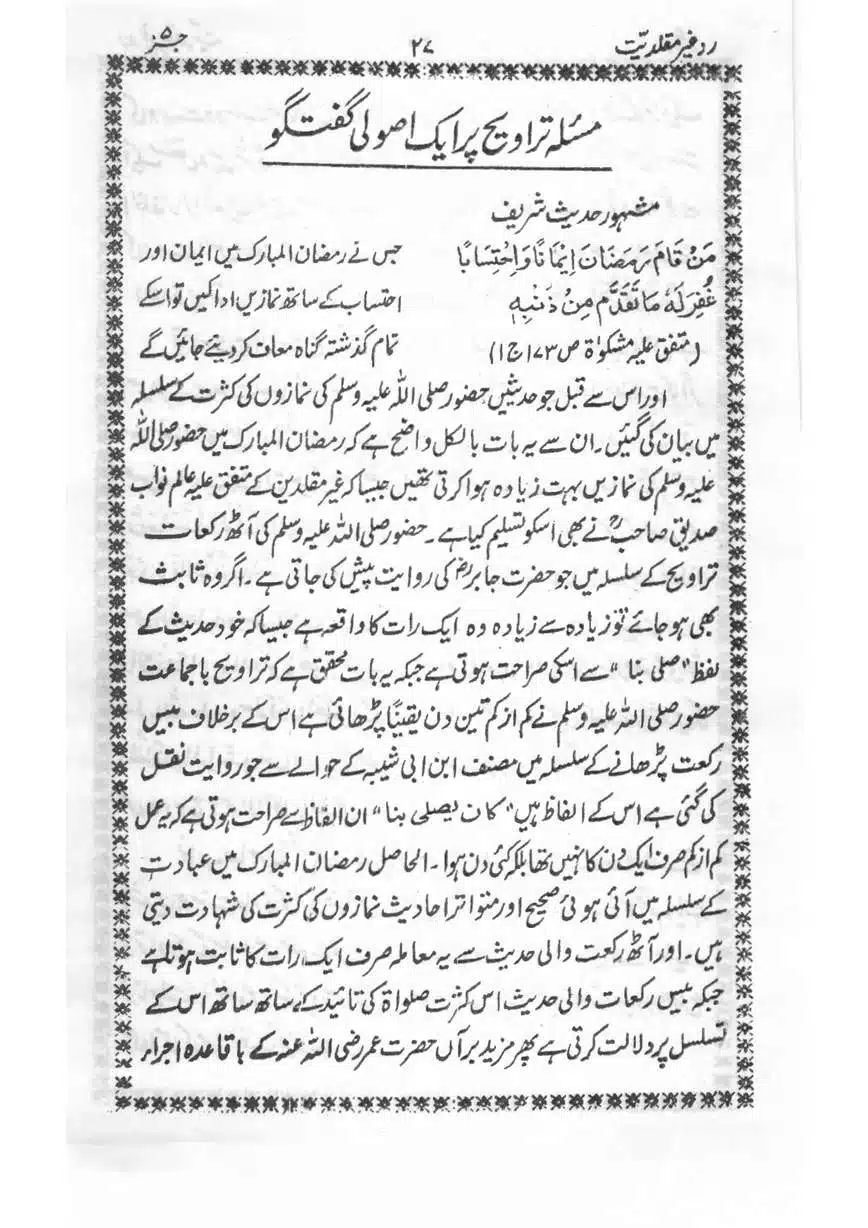 رد غیر مقلدیّت ۲۷ جز ۵
مسئلہ تراویح پر ایک اصولی گفتگو
مشہور حدیث شریف
مَنْ قَامَ رَمَضَانَ اِیْمَانًا وَّاِحْتِسَابًا جس نے رمضان المبارک میں ایمان اور
غُفِرَ لَهٗ مَا تَقَدَّمَ مِنْ ذَنْبِهٖ احتساب کے ساتھ نمازیں ادا کیں تو اسکے
(متفق علیہ مشکوٰۃ ص ۱۷۳ ج ۱) تمام گذشتہ گناہ معاف کردیئے جائیں گے
اور اس سے قبل جو حدیثیں حضور صلی اللہ علیہ وسلم کی نمازوں کی کثرت کے سلسلہ
میں بیان کی گئیں۔ ان سے یہ بات بالکل واضح ہے کہ رمضان المبارک میں حضور صلی اللہ
علیہ وسلم کی نمازیں بہت زیادہ ہوا کرتی تھیں جیسا کہ غیر مقلدین کے متفق علیہ عالم نواب
صدیق صاحبؒ نے بھی اسکو تسلیم کیا ہے۔ حضور صلی اللہ علیہ وسلم کی آٹھ رکعات
تراویح کے سلسلہ میں جو حضرت جابرؓ کی روایت پیش کی جاتی ہے۔ اگر وہ ثابت
بھی ہو جائے تو زیادہ سے زیادہ وہ ایک رات کا واقعہ ہے جیسا کہ خود حدیث کے
لفظ "صلی بنا" سے اسکی صراحت ہوتی ہے جبکہ یہ بات محقق ہے کہ تراویح باجماعت
حضور صلی اللہ علیہ وسلم نے کم از کم تین دن یقینًا پڑھائی ہے اس کے برخلاف بیس
رکعت پڑھانے کے سلسلہ میں مصنف ابن ابی شیبہ کے حوالے سے جو روایت نقل
کی گئی ہے اس کے الفاظ ہیں "کان یصلی بنا" ان الفاظ سے صراحت ہوتی ہے کہ یہ عمل
کم از کم صرف ایک دن کا نہیں تھا بلکہ کئی دن ہوا۔ الحاصل رمضان المبارک میں عبادت
کے سلسلہ میں آئی ہوئی صحیح اور متواتر احادیث نمازوں کی کثرت کی شہادت دیتی
ہیں۔ اور آٹھ رکعت والی حدیث سے یہ معاملہ صرف ایک رات کا ثابت ہوتا ہے
جبکہ بیس رکعات والی حدیث اس کثرت صلواۃ کی تائید کے ساتھ ساتھ اس کے
تسلسل پر دلالت کرتی ہے پھر مزید برآں حضرت عمر رضی اللہ عنہ کے باقاعدہ اجراء